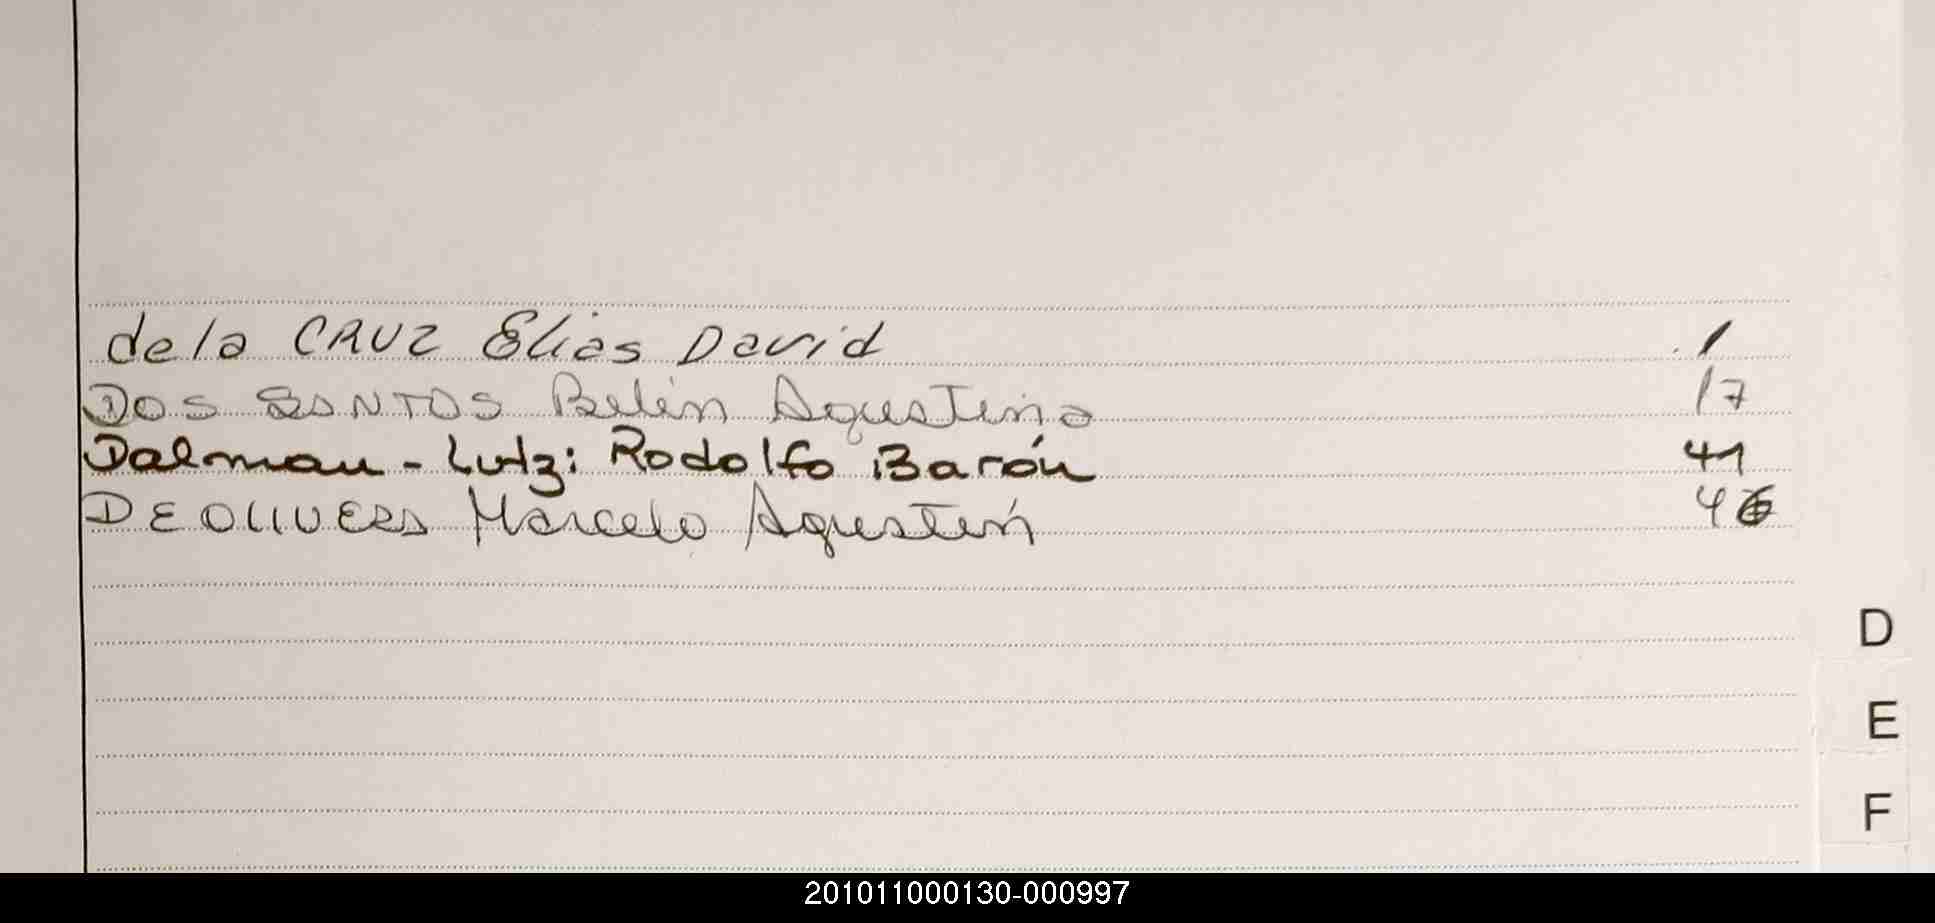 de la CRUZ Elias David 1
DOS SANTOS Belén Agustina 17
Dalmau - Lutz: Rodolfo Barón 41
DE OLIVERA Marcelo Agustín 46
D
E
F
201011000130-000997